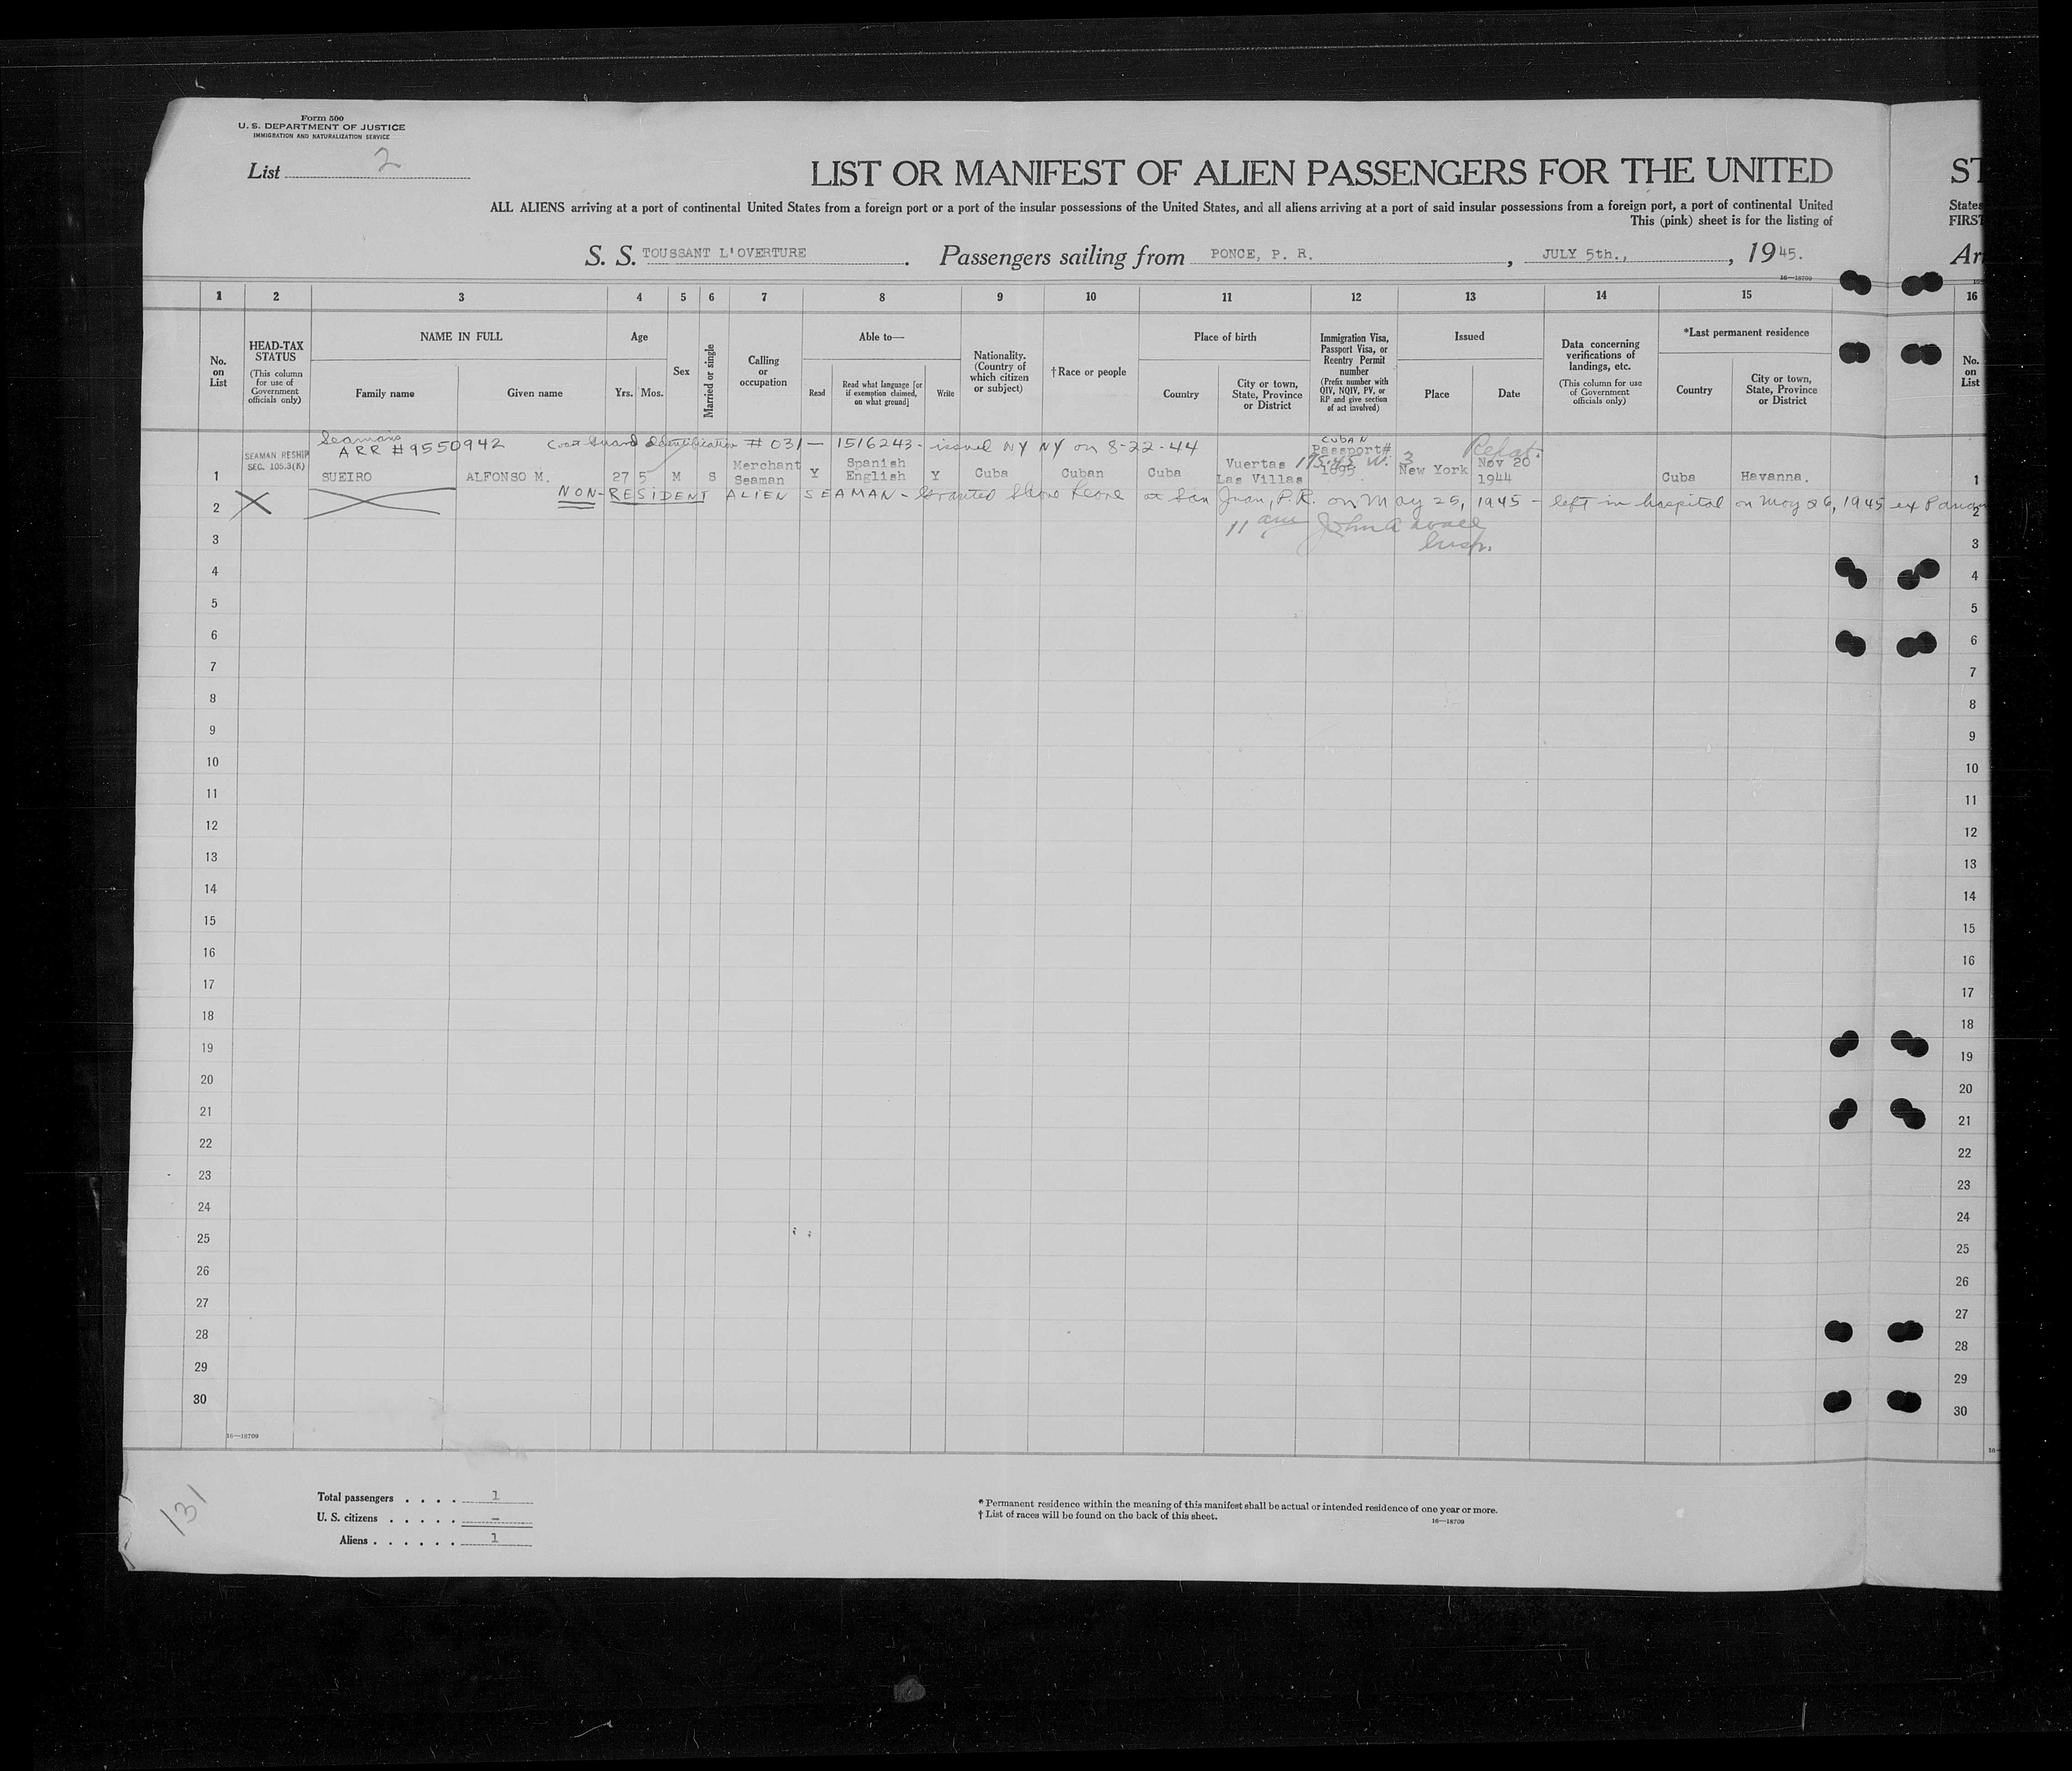 Form 500
U. S. DEPARTMENT OF JUSTICE
IMMIGRATION AND NATURALIZATION SERVICE
List 2
LIST OR MANIFEST OF ALIEN PASSENGERS FOR THE UNITED ST
ALL ALIENS arriving at a port of continental United States from a foreign port or a port of the insular possessions of the United States, and all aliens arriving at a port of said insular possessions from a foreign port, a port of continental United States
This (pink) sheet is for the listing of FIRST
S. S. TOUSSANT L'OVERTURE . Passengers sailing from PONCE, P. R. , JULY 5th., , 1945. Ar
16—18709
1 2 3 4 5 6 7 8 9 10 11 12 13 14 15 16
No. on List
HEAD-TAX STATUS
(This column for use of Government officials only)
NAME IN FULL
Family name
Given name
Age
Yrs. Mos.
Sex
Married or single
Calling or occupation
Able to—
Read
Read what language [or if exemption claimed, on what ground]
Write
Nationality. (Country of which citizen or subject)
†Race or people
Place of birth
Country
City or town, State, Province or District
Immigration Visa, Passport Visa, or Reentry Permit number
(Prefix number with QIV, NQIV, PV, or RP and give section of act involved)
Issued
Place
Date
Data concerning verifications of landings, etc.
(This column for use of Government officials only)
*Last permanent residence
Country
City or town, State, Province or District
No. on List
Seamans
ARR #9550942 Coast Guard Identification # 031— 1516243- issued NY NY on 8-22-44
SEAMAN RESHIP
SEC. 105.3(K)
CUBAN
Passport#
1895
1 SUEIRO ALFONSO M. 27 5 M S Merchant Seaman Y Spanish English Y Cuba Cuban Cuba Vuertas Las Villas New York Nov 20 1944 Cuba Havanna. 1
NON-RESIDENT ALIEN SEAMAN - Granted Shore Leave at San Juan, P.R. on May 25, 1945 - left in hospital on May 26, 1945 ex
2 2
11 am John A
Insp.
3 3
4 4
5 5
6 6
7 7
8 8
9 9
10 10
11 11
12 12
13 13
14 14
15 15
16 16
17 17
18 18
19 19
20 20
21 21
22 22
23 23
24 24
25 25
26 26
27 27
28 28
29 29
30 30
16—18709
16—
131
Total passengers . . . . 1
U. S. citizens . . . . . –
Aliens . . . . . . 1
* Permanent residence within the meaning of this manifest shall be actual or intended residence of one year or more.
† List of races will be found on the back of this sheet.
16—18709